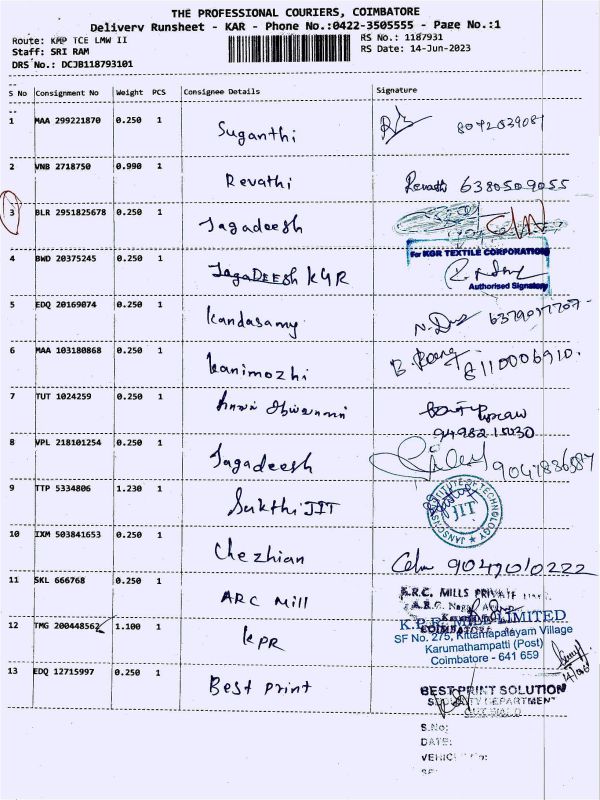 THE PROFESSIONAL COURIERS, COIMBATORE
Delivery Runsheet - KAR - Phone No.:0422-3505555 - Page No.:1
Route: KMP TCE LMW II RS No.: 1187931
Staff: SRI RAM RS Date: 14-Jun-2023
DRS No.: DCJB118793101
S No Consignment No Weight PCS Consignee Details Signature
1 MAA 299221870 0.250 1 Suganthi
2 VNB 2718750 0.990 1 Revathi Revathi 6380509055
3 BLR 2951825678 0.250 1 Jagadeesh
4 BWD 20375245 0.250 1 JagaDEESh KGR For KGR TEXTILE CORPORATION
Authorised Signatory
5 EDQ 20169074 0.250 1 Kandasamy
6 MAA 103180868 0.250 1 Kanimozhi 8110006910.
7 TUT 1024259 0.250 1
8 VPL 218101254 0.250 1 Jagadeesh
9 TTP 5334806 1.230 1 Sakthi JIT INSTITUTE OF TECHNOLOGY JIT
10 IXM 503841653 0.250 1 Chezhian
11 SKL 666768 0.250 1 ARC Mill A.R.C. MILLS PRIVATE
12 TMG 200448562 1.100 1 KPR K.P.R. MILL LIMITED
SF No. 275, Kittampalayam Village
Karumathampatti (Post)
Coimbatore - 641 659
13 EDQ 12715997 0.250 1 Best Print BEST PRINT SOLUTION
DEPARTMENT
S.No:
DATE: